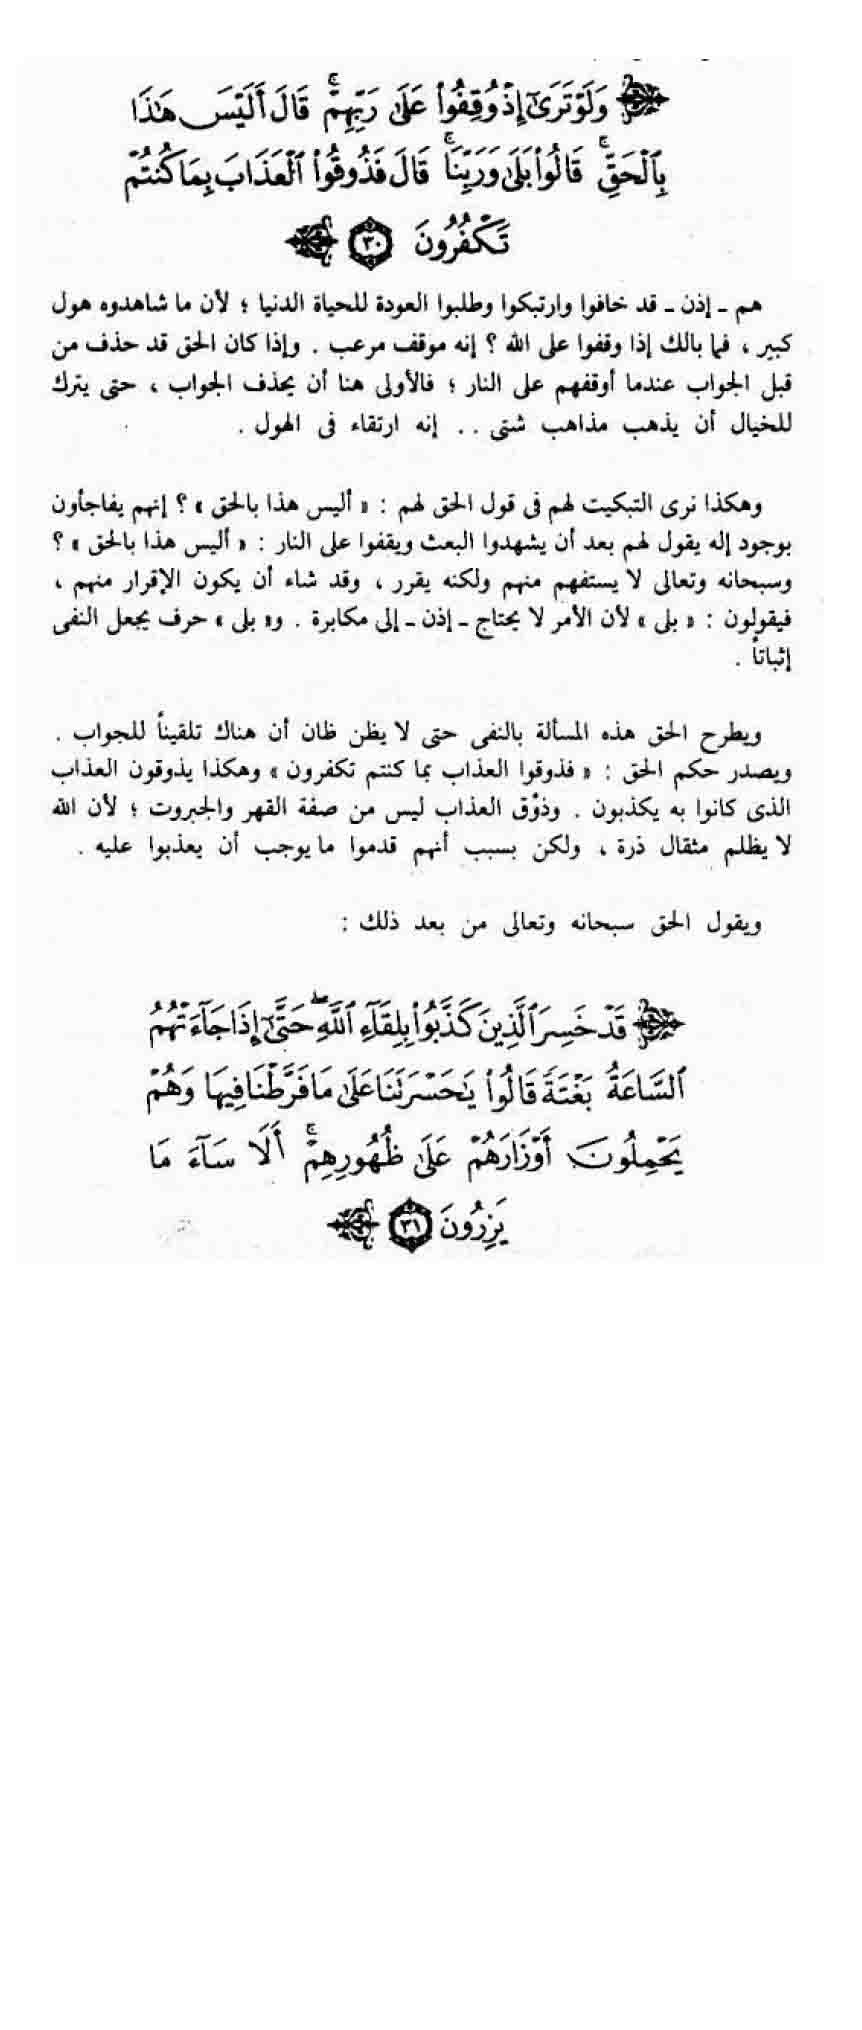 وَلَوْ تَرَىٰٓ إِذْ وُقِفُوا۟ عَلَىٰ رَبِّهِمْ ۚ قَالَ أَلَيْسَ هَٰذَا
بِٱلْحَقِّ ۚ قَالُوا۟ بَلَىٰ وَرَبِّنَا ۚ قَالَ فَذُوقُوا۟ ٱلْعَذَابَ بِمَا كُنتُمْ
تَكْفُرُونَ ٣٠
هم ـ إذن ـ قد خافوا وارتبكوا وطلبوا العودة للحياة الدنيا ؛ لأن ما شاهدوه هول
كبير ، فما بالك إذا وقفوا على الله ؟ إنه موقف مرعب . وإذا كان الحق قد حذف من
قبل الجواب عندما أوقفهم على النار ؛ فالأولى هنا أن يحذف الجواب ، حتى يترك
للخيال أن يذهب مذاهب شتى . . إنه ارتقاء فى الهول .
وهكذا نرى التبكيت لهم فى قول الحق لهم : « أليس هذا بالحق » ؟ إنهم يفاجأون
بوجود إله يقول لهم بعد أن يشهدوا البعث ويقفوا على النار : « أليس هذا بالحق » ؟
وسبحانه وتعالى لا يستفهم منهم ولكنه يقرر ، وقد شاء أن يكون الإقرار منهم ،
فيقولون : « بلى » لأن الأمر لا يحتاج ـ إذن ـ إلى مكابرة . و« بلى » حرف يجعل النفى
إثباتاً .
ويطرح الحق هذه المسألة بالنفى حتى لا يظن ظان أن هناك تلقيناً للجواب .
ويصدر حكم الحق : « فذوقوا العذاب بما كنتم تكفرون » وهكذا يذوقون العذاب
الذى كانوا به يكذبون . وذوْق العذاب ليس من صفة القهر والجبروت ؛ لأن الله
لا يظلم مثقال ذرة ، ولكن بسبب أنهم قدموا ما يوجب أن يعذبوا عليه .
ويقول الحق سبحانه وتعالى من بعد ذلك :
قَدْ خَسِرَ ٱلَّذِينَ كَذَّبُوا۟ بِلِقَآءِ ٱللَّهِ ۖ حَتَّىٰٓ إِذَا جَآءَتْهُمُ
ٱلسَّاعَةُ بَغْتَةً قَالُوا۟ يَٰحَسْرَتَنَا عَلَىٰ مَا فَرَّطْنَا فِيهَا وَهُمْ
يَحْمِلُونَ أَوْزَارَهُمْ عَلَىٰ ظُهُورِهِمْ ۚ أَلَا سَآءَ مَا
يَزِرُونَ ٣١